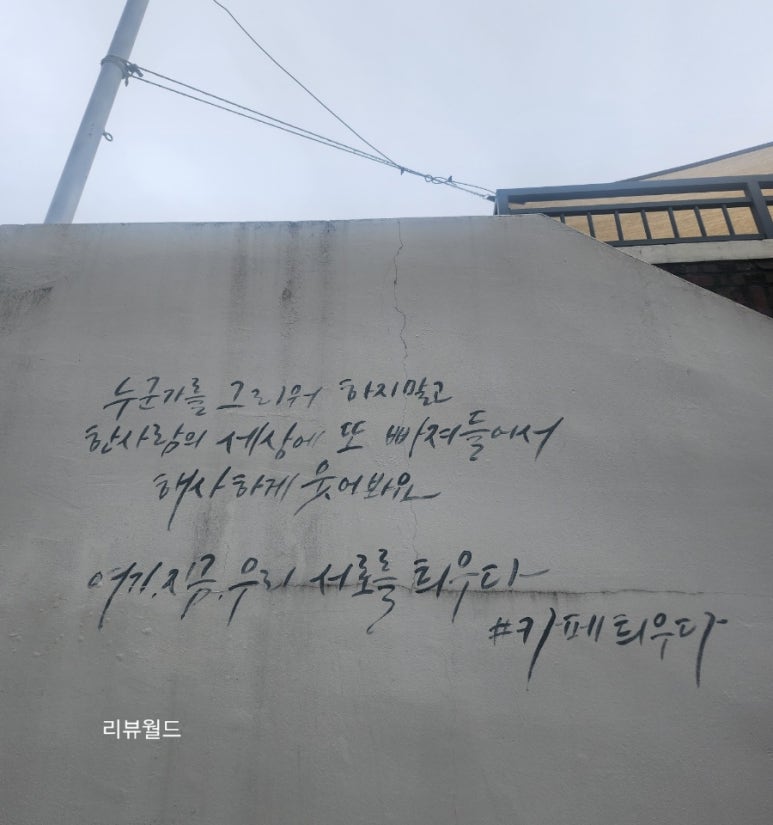 누군가를 그리워 하지말고
한사람의 세상에 또 빠져들어서
해사하게 웃어봐요
여기, 지금, 우리 서로를 틔우다
#카페틔우다
리뷰월드